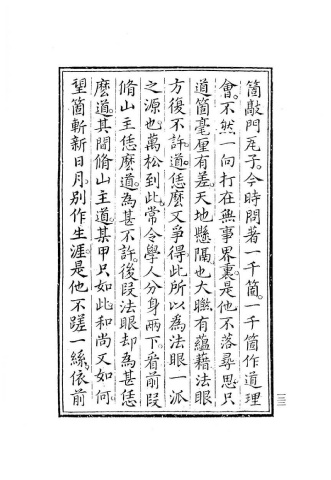 箇敲門瓦子今時問著一千箇一千箇作道理
會不然一向打在無事界裏是他不落尋思只
道箇毫厘有差天地懸隔也大㬠有蘊藉法眼
方後不許道恁麼又爭得此所以為法眼一派
之源也萬松到此常令學人分身兩下看前段
脩山主恁麼道為甚不許後段法眼却為甚恁
麼道其間脩山主道某甲只如此和尚又如何
望箇斬新日月別作生涯是他不蹉一絲依前
三